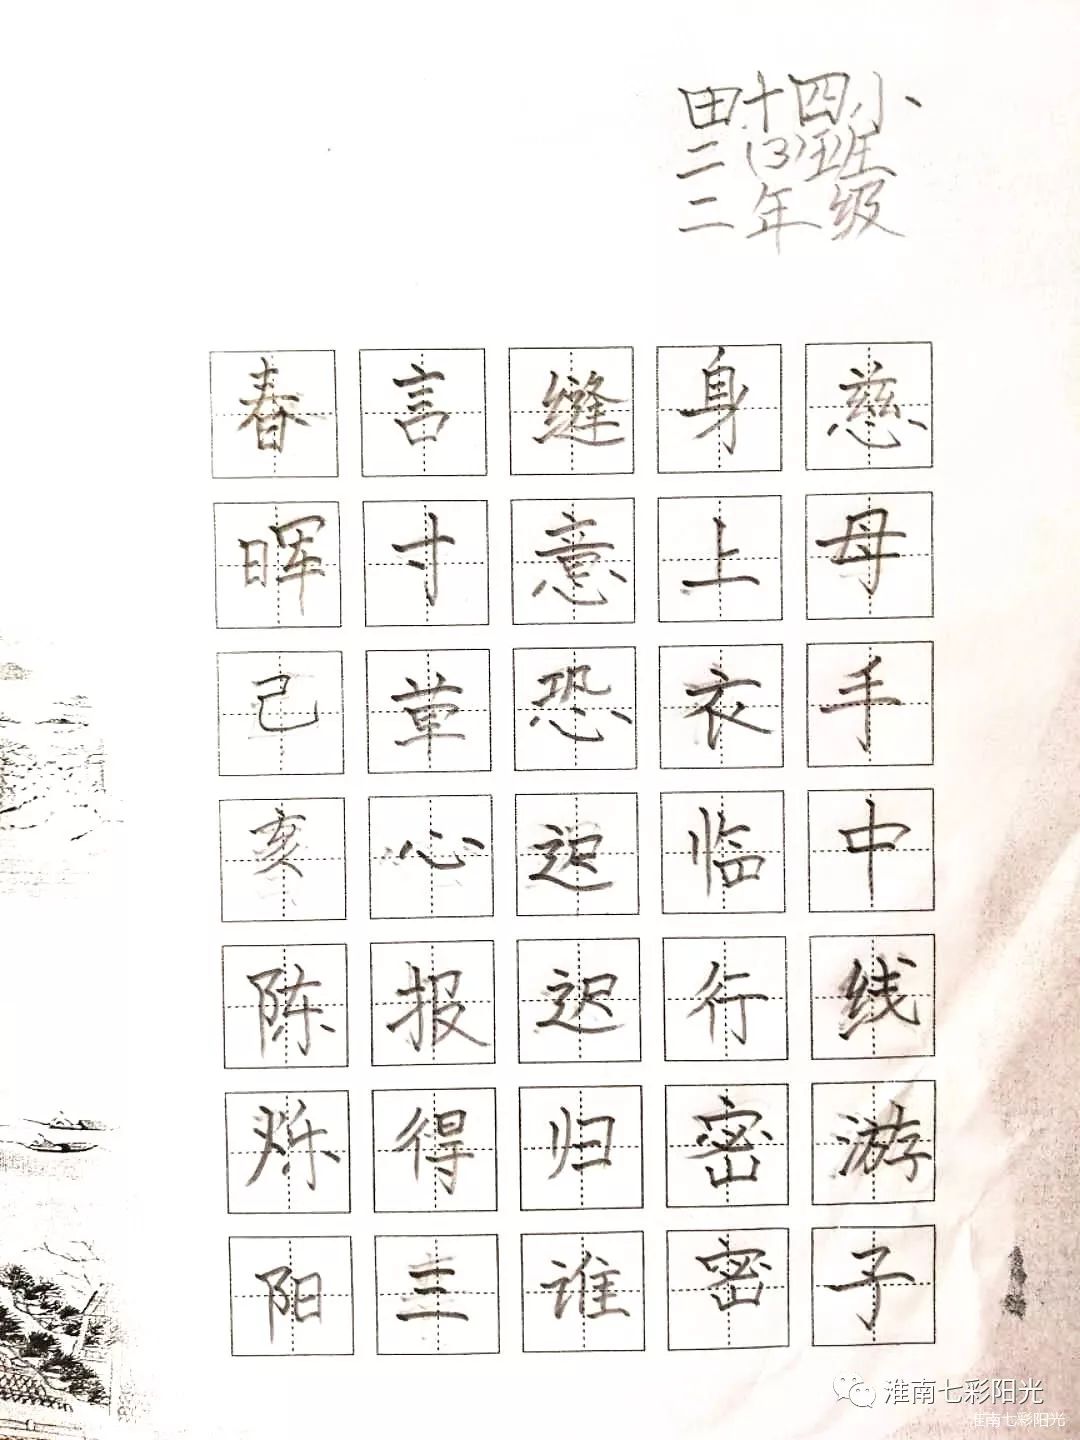 田十四小
二(3)班
二年级
慈母手中线游子
身上衣临行密密
缝意恐迟迟归谁
言寸草心报得三
春晖己亥陈烁阳
淮南七彩阳光
淮南七彩阳光